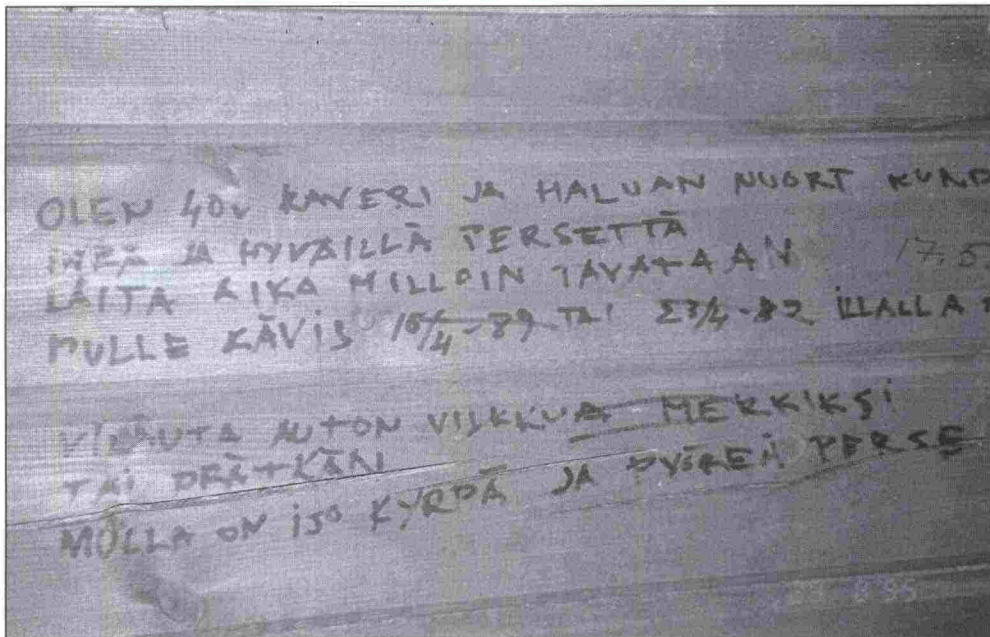 OLEN 40v KAVERI JA HALUAN NUORT
JA HYVÄILLÄ PERSETTÄ
LAITA AIKA MILLOIN TAVATAAN 17.5
MULLE KÄVIS 15/4-89 TAI 23/4-89 ILLALLA
VILÄUTA AUTON VILKKUA MERKIKSI
TAI
MULLA ON ISO KYRPÄ JA PYÖREÄ PERSE
8 95